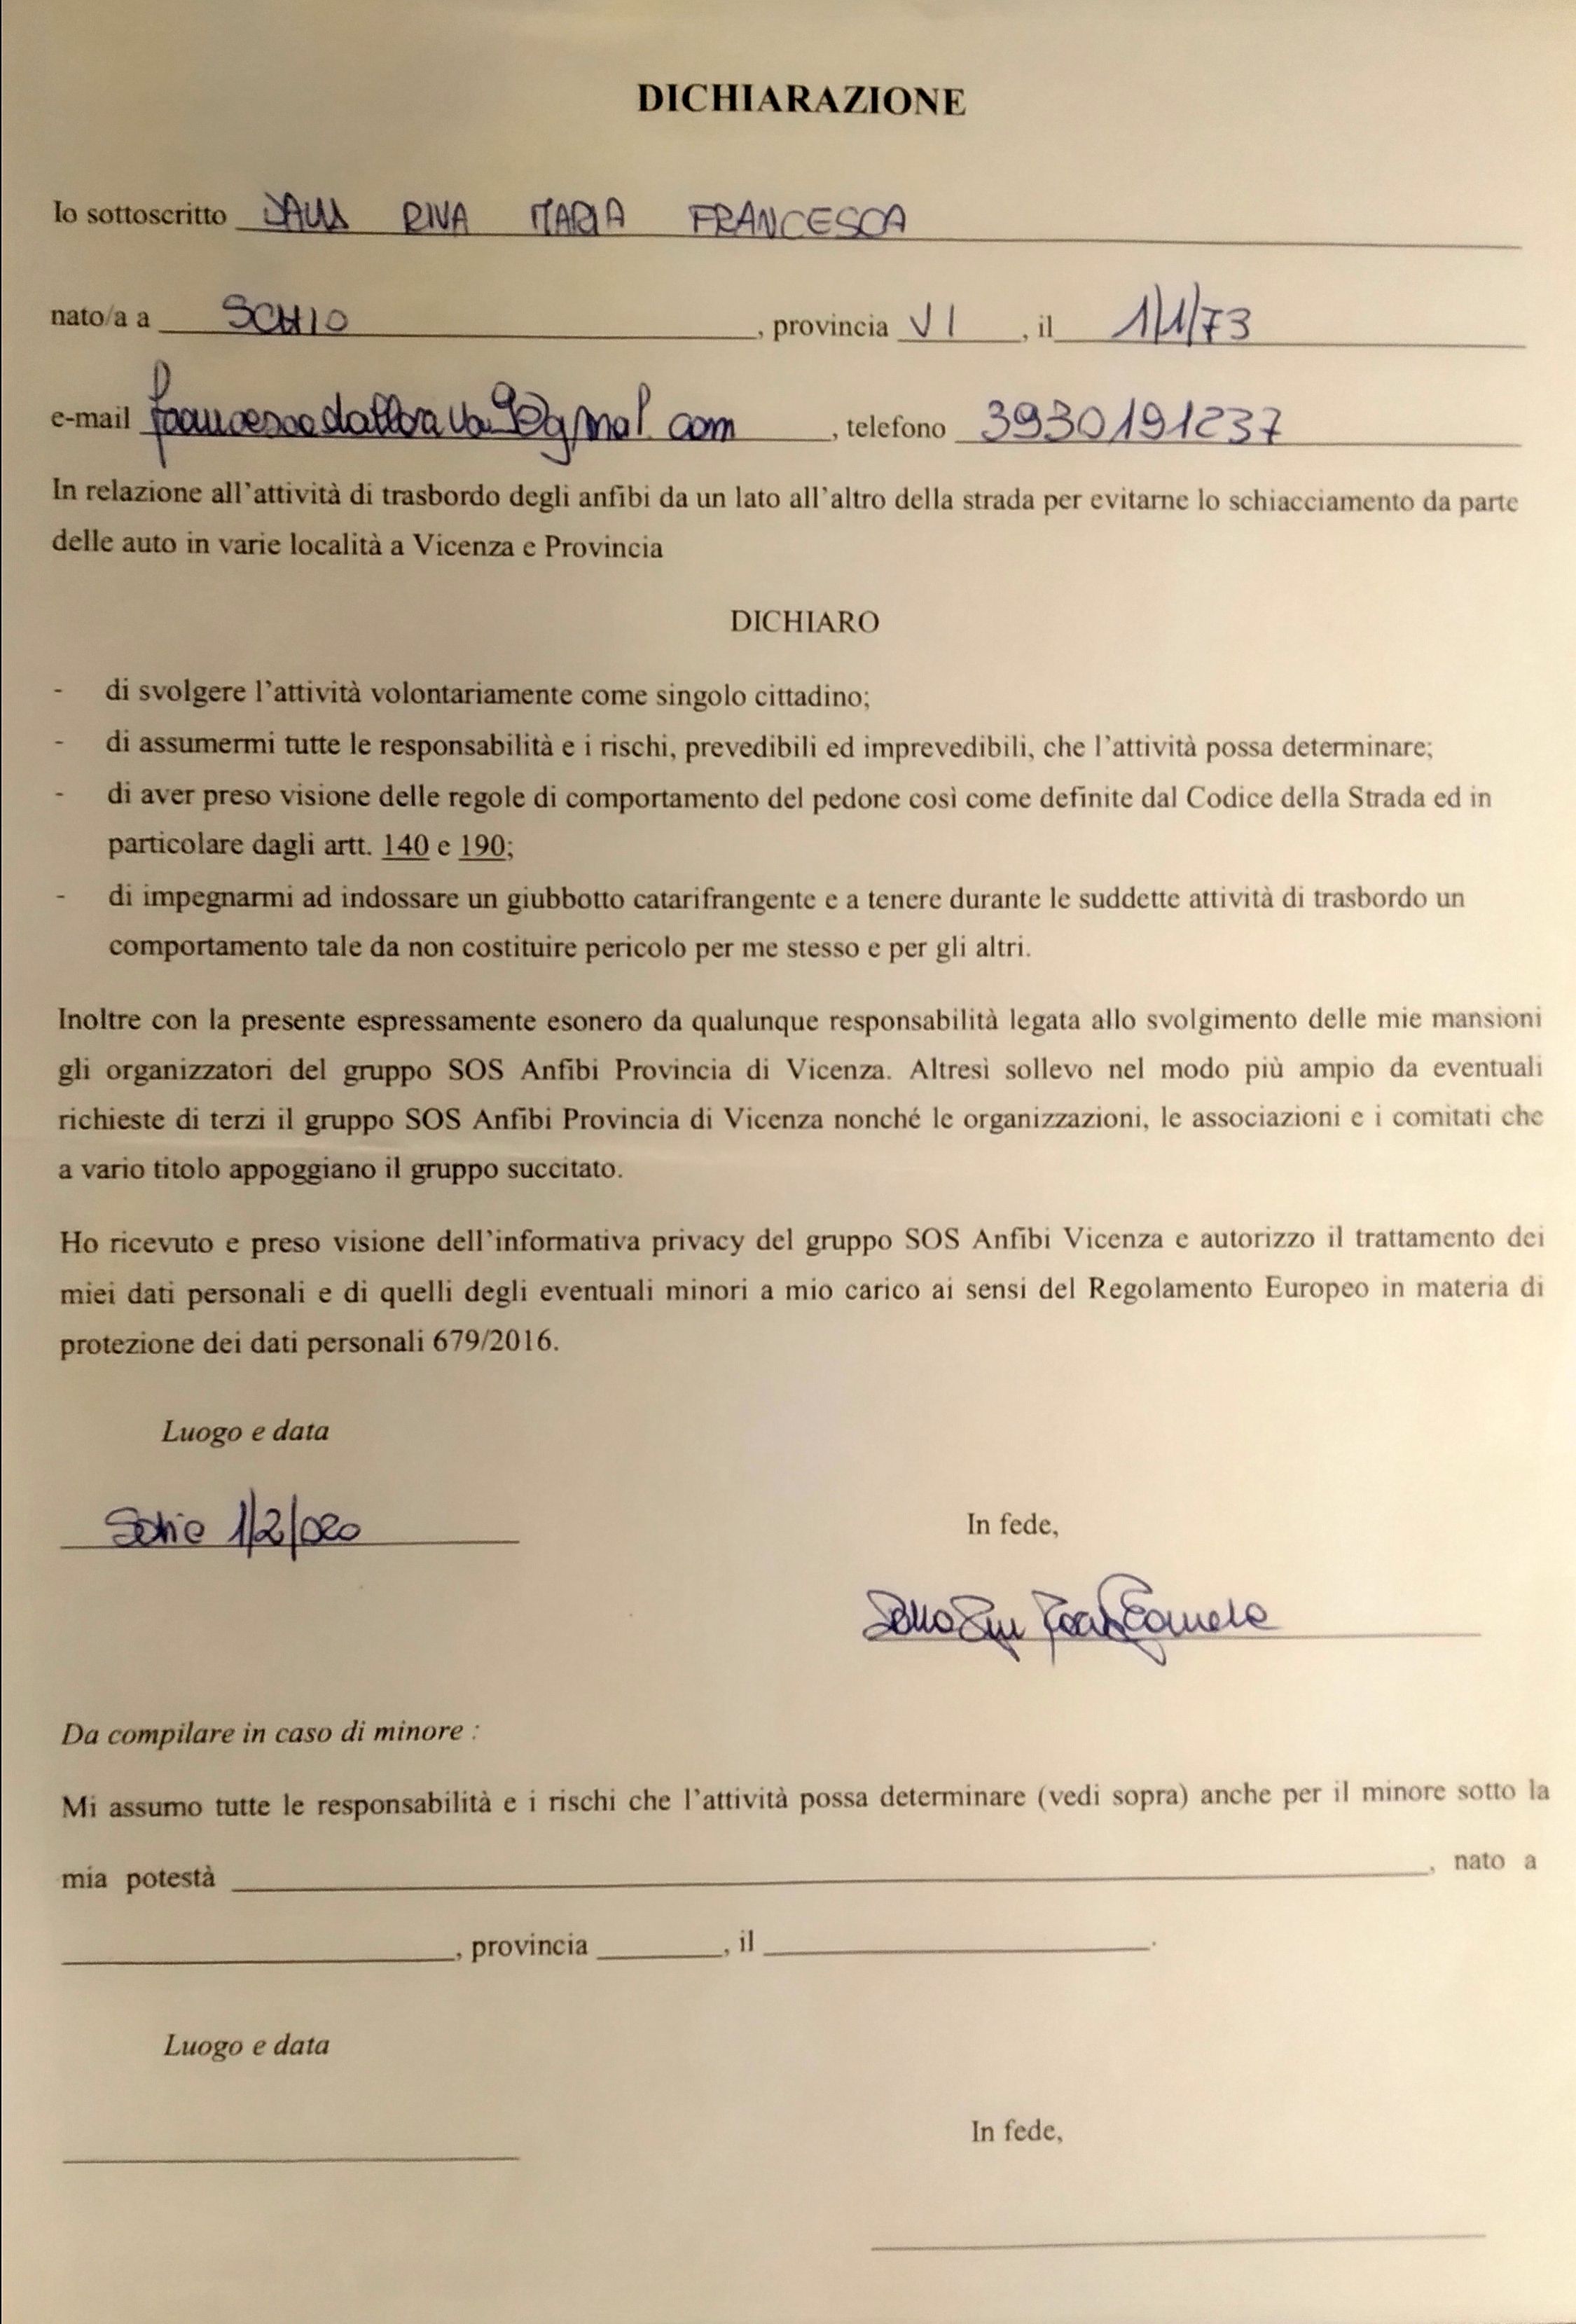 DICHIARAZIONE
Io sottoscritto DALLA RIVA MARIA FRANCESCA
nato/a a SCHIO , provincia VI , il 1/1/73
e-mail , telefono 3930191237
In relazione all'attività di trasbordo degli anfibi da un lato all'altro della strada per evitarne lo schiacciamento da parte
delle auto in varie località a Vicenza e Provincia
DICHIARO
- di svolgere l'attività volontariamente come singolo cittadino;
- di assumermi tutte le responsabilità e i rischi, prevedibili ed imprevedibili, che l'attività possa determinare;
- di aver preso visione delle regole di comportamento del pedone così come definite dal Codice della Strada ed in
particolare dagli artt. 140 e 190;
- di impegnarmi ad indossare un giubbotto catarifrangente e a tenere durante le suddette attività di trasbordo un
comportamento tale da non costituire pericolo per me stesso e per gli altri.
Inoltre con la presente espressamente esonero da qualunque responsabilità legata allo svolgimento delle mie mansioni
gli organizzatori del gruppo SOS Anfibi Provincia di Vicenza. Altresì sollevo nel modo più ampio da eventuali
richieste di terzi il gruppo SOS Anfibi Provincia di Vicenza nonché le organizzazioni, le associazioni e i comitati che
a vario titolo appoggiano il gruppo succitato.
Ho ricevuto e preso visione dell'informativa privacy del gruppo SOS Anfibi Vicenza e autorizzo il trattamento dei
miei dati personali e di quelli degli eventuali minori a mio carico ai sensi del Regolamento Europeo in materia di
protezione dei dati personali 679/2016.
Luogo e data
Schio 1/2/020
In fede,
Da compilare in caso di minore :
Mi assumo tutte le responsabilità e i rischi che l'attività possa determinare (vedi sopra) anche per il minore sotto la
mia potestà , nato a
, provincia , il .
Luogo e data
In fede,